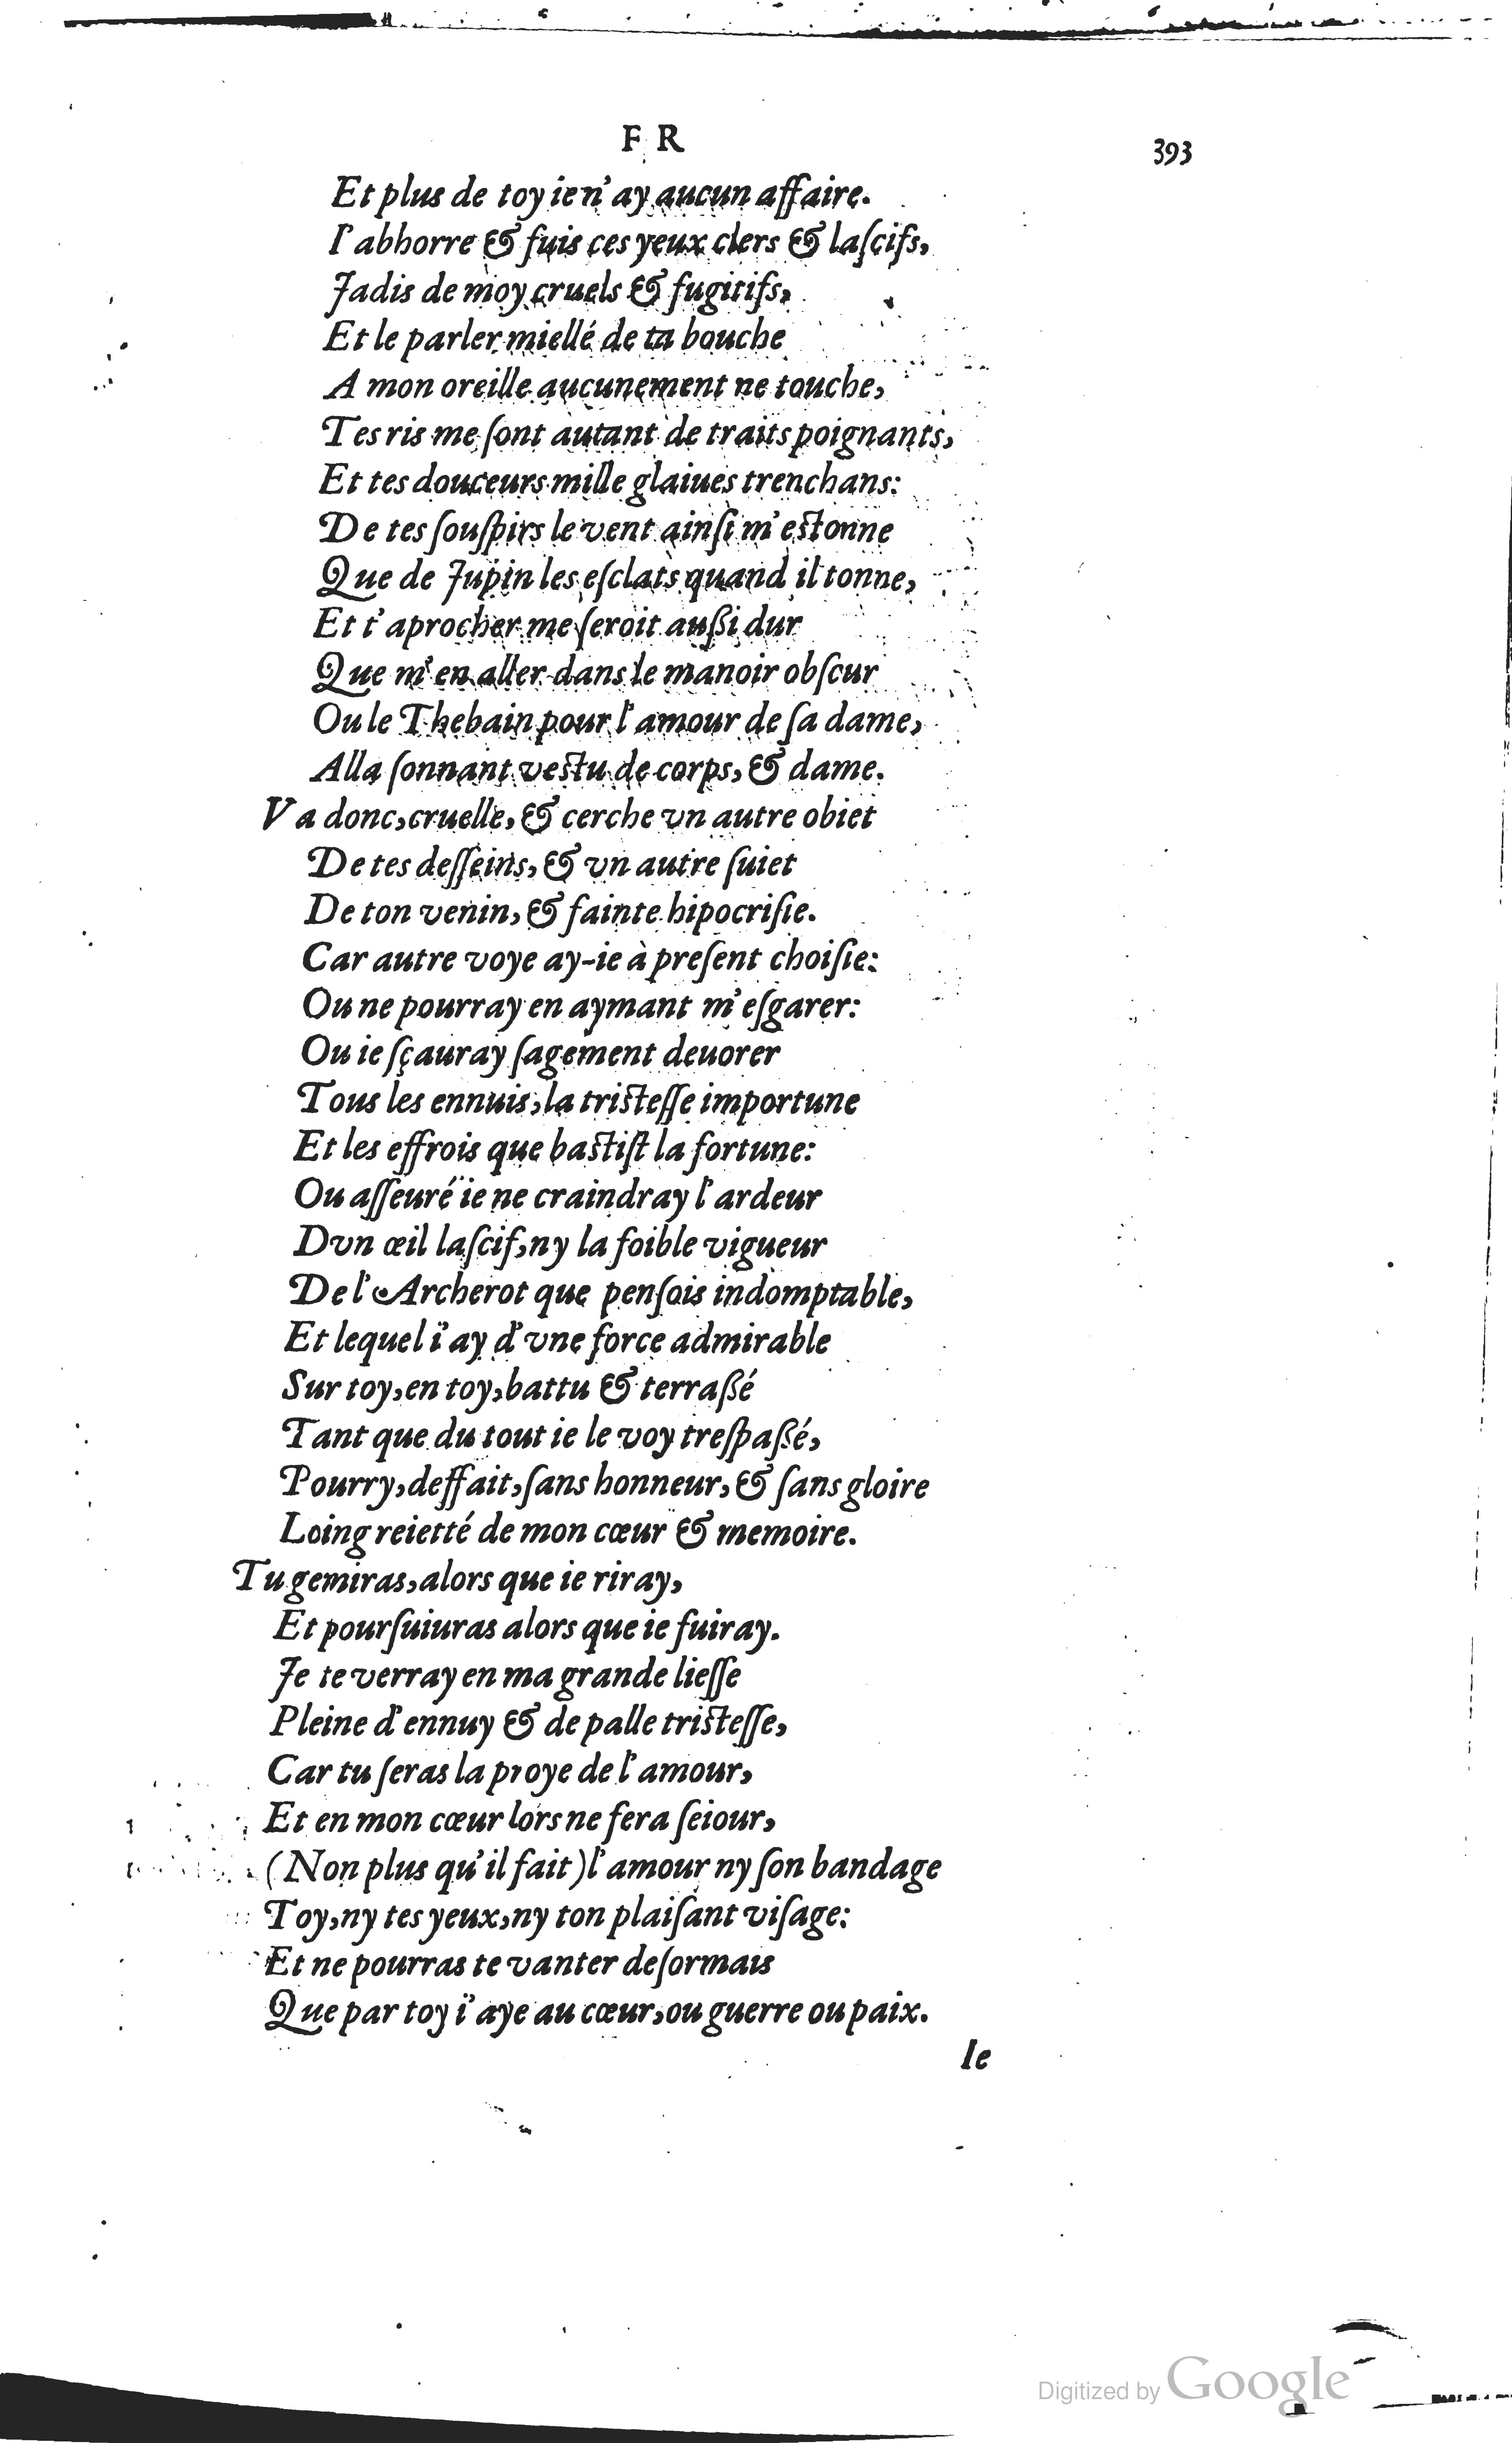 F R
393
Et plus de toy ie n'ay aucun affaire.
I'abhorre & fuis ces yeux clers & laſcifs,
Jadis de moy cruels & fugitifs,
Et le parler miellé de ta bouche
A mon oreille aucunement ne touche,
Tes ris me ſont autant de traits poignants,
Et tes douceurs mille glaiues trenchans:
De tes ſouſpirs le vent ainſi m'eſtonne
Que de Jupin les eſclats quand il tonne,
Et t'aprocher me ſeroit außi dur
Que m'en aller dans le manoir obſcur
Ou le Thebain pour l'amour de ſa dame,
Alla ſonnant veſtu de corps, & dame.
Va donc, cruelle, & cerche vn autre obiet
De tes deſſeins, & vn autre ſuiet
De ton venin, & fainte hipocriſie.
Car autre voye ay-ie à preſent choiſie:
Ou ne pourray en aymant m'eſgarer:
Ou ie ſçauray ſagement deuorer
Tous les ennuis, la triſteſſe importune
Et les effrois que baſtiſt la fortune:
Ou aſſeuré ie ne craindray l'ardeur
Dvn œil laſcif, ny la foible vigueur
De l'Archerot que penſois indomptable,
Et lequel i'ay d'vne force admirable
Sur toy, en toy, battu & terraßé
Tant que du tout ie le voy treſpaßé,
Pourry, deffait, ſans honneur, & ſans gloire
Loing reietté de mon cœur & memoire.
Tu gemiras, alors que ie riray,
Et pourſuiuras alors que ie fuiray.
Je te verray en ma grande lieſſe
Pleine d'ennuy & de palle triſteſſe,
Car tu ſeras la proye de l'amour,
Et en mon cœur lors ne fera ſeiour,
(Non plus qu'il fait) l'amour ny ſon bandage
Toy, ny tes yeux, ny ton plaiſant viſage:
Et ne pourras te vanter deſormais
Que par toy i'aye au cœur, ou guerre ou paix.
Ie
Digitized by Google